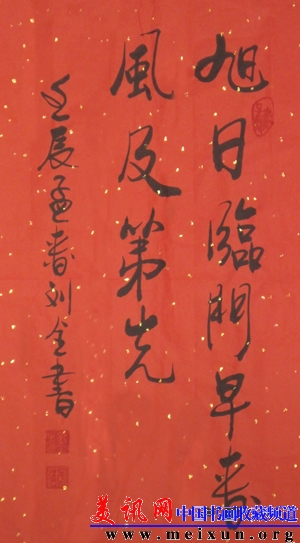 旭日臨門早春
風及第先
壬辰孟春刘全書
美訊网 中国书画收藏频道
www.meixun.org